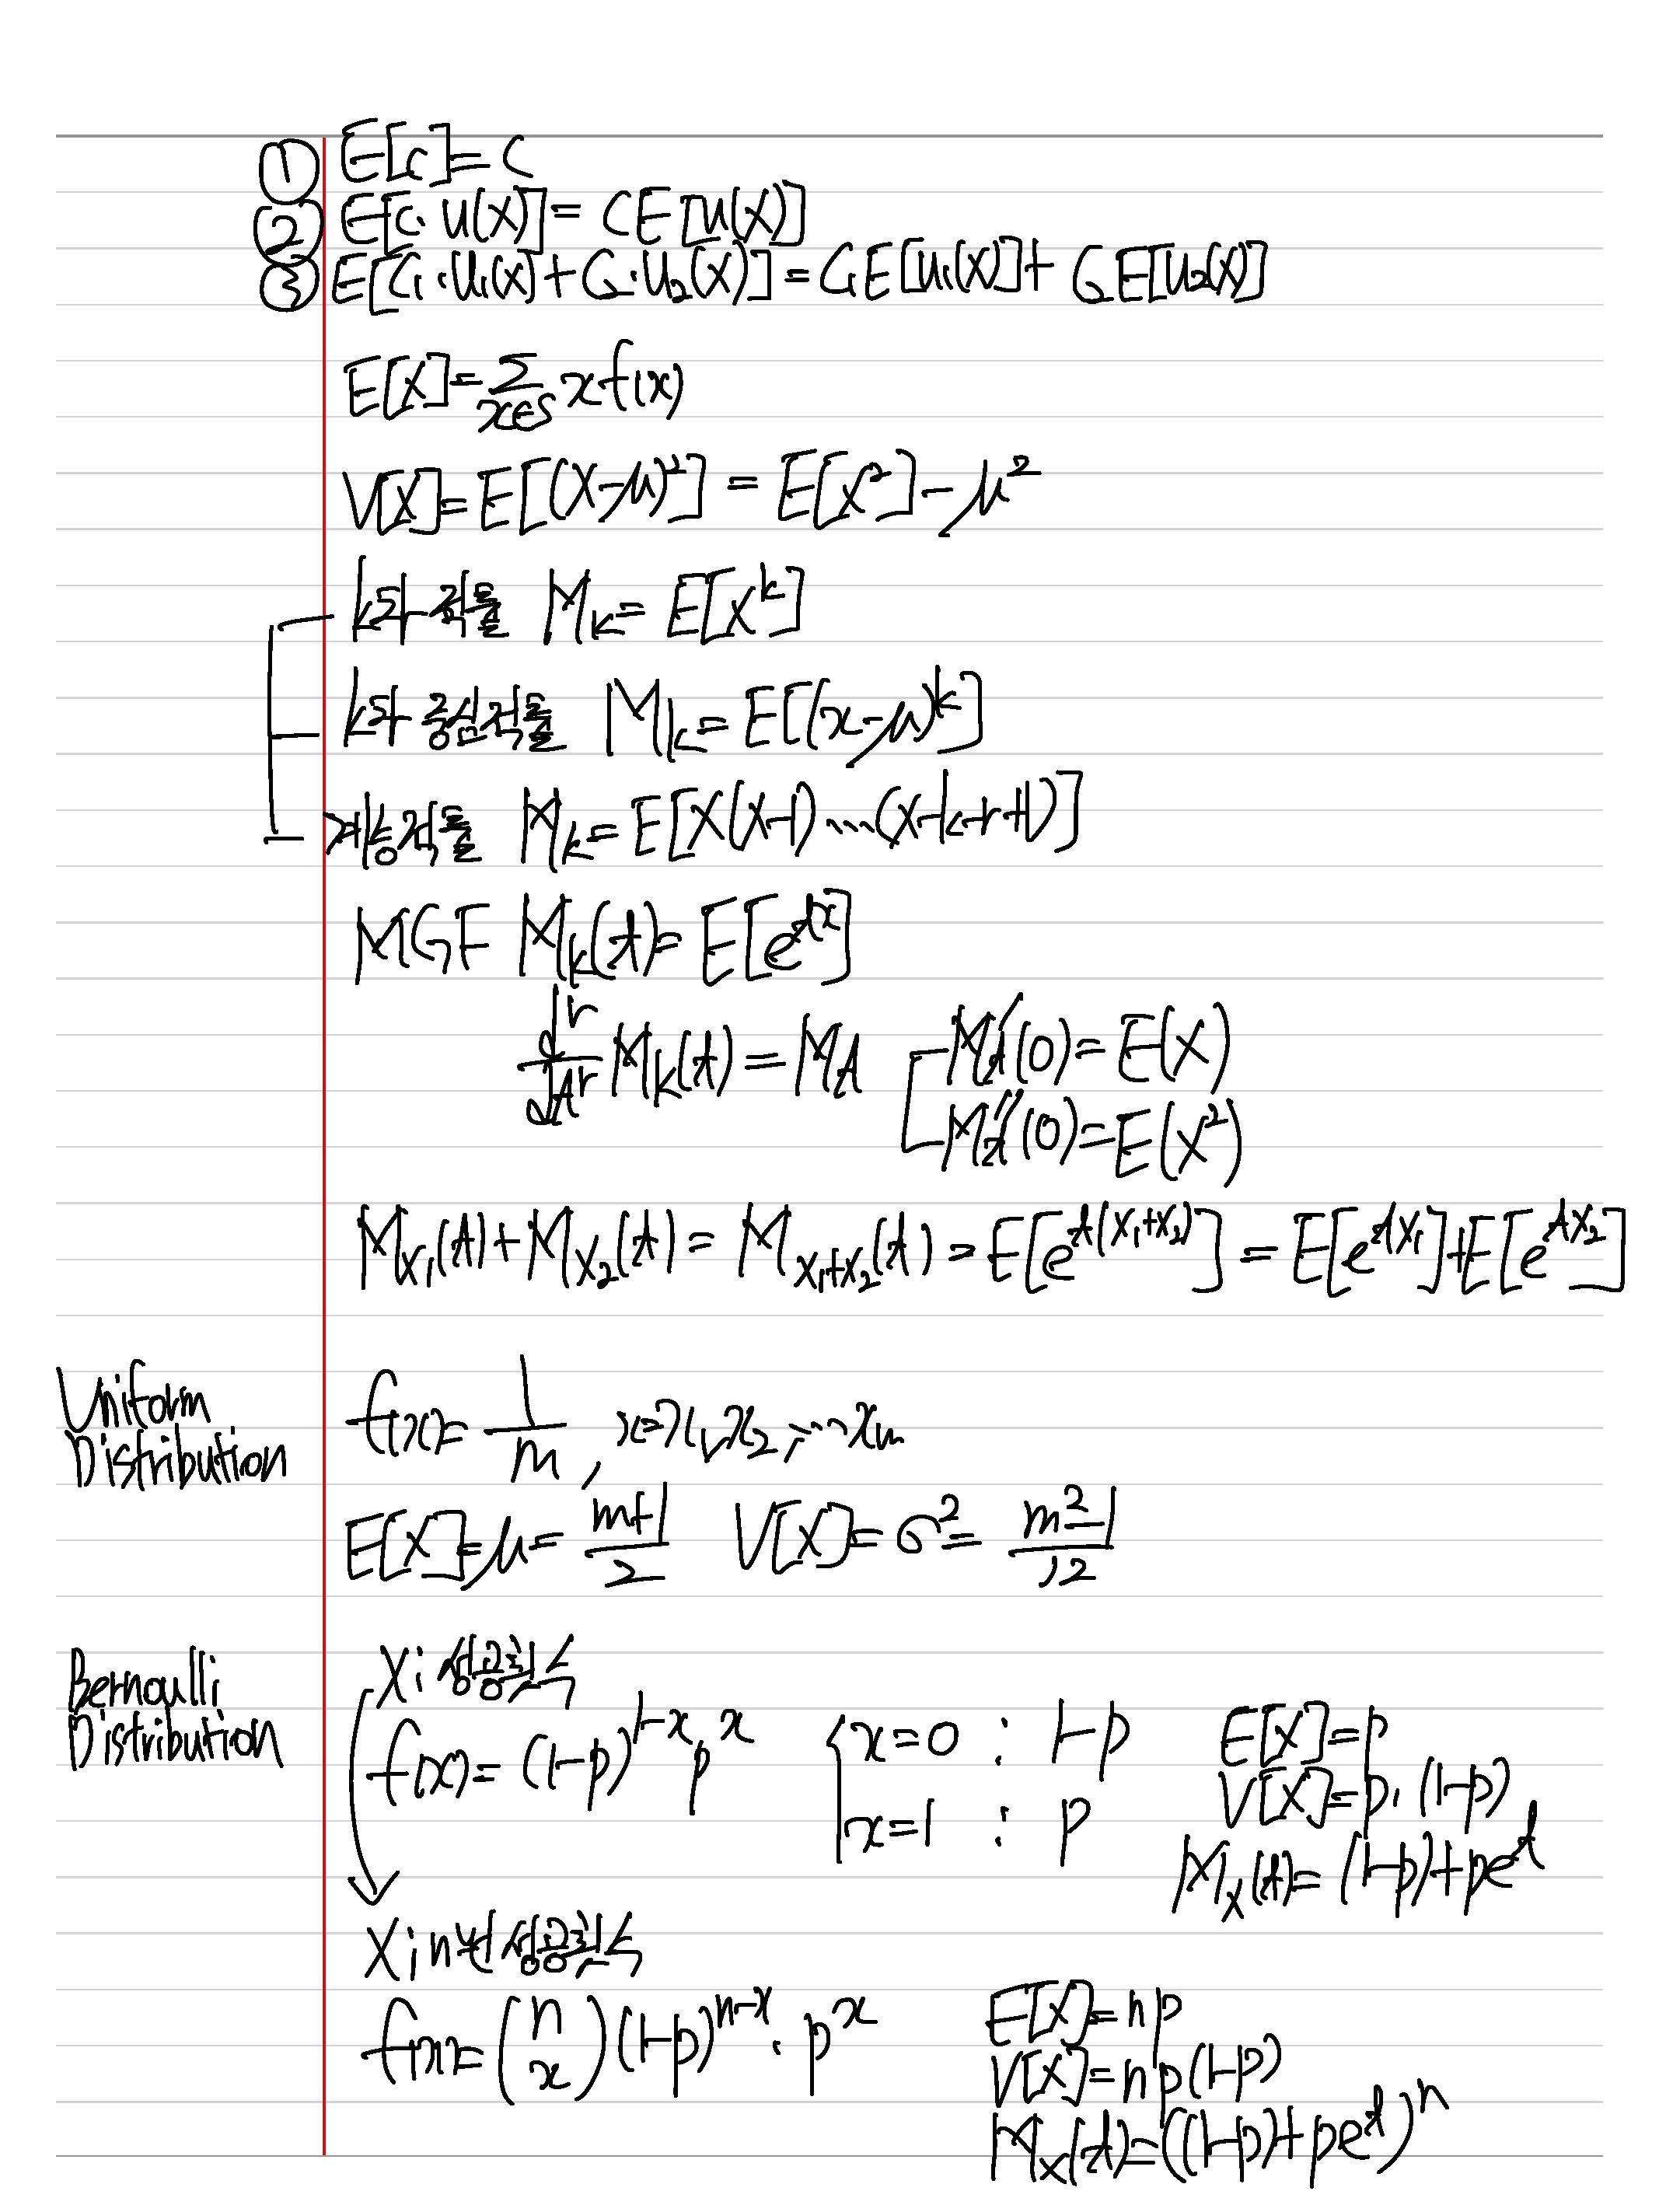 ① E[c]=c
② E[c·u(X)]=cE[u(X)]
③ E[C₁·u₁(x)+C₂·u₂(x)]=C₁E[u₁(x)]+C₂E[u₂(x)]
E[X]=Σ_{x∈S} x f(x)
V[X]=E[(X-μ)²]=E[X²]-μ²
k차 적률 M_k=E[X^k]
k차 중심적률 M_k=E[(x-μ)^k]
계승적률 M_k=E[X(X-1)...(X-k+r+1)]
MGF M_k(t)=E[e^{tx}]
d^r/dt^r M_k(t)=M_t M_t'(0)=E(X)
M_t''(0)=E(X²)
M_{X₁}(t)+M_{X₂}(t)=M_{X₁+X₂}(t)=E[e^{t(X₁+X₂)}]=E[e^{tX₁}]+E[e^{tX₂}]
Uniform Distribution
f(x)=1/m, x=x₁,x₂,...x_m
E[X]=μ=(m+1)/2 V[X]=σ²=(m²-1)/12
Bernoulli Distribution
X: 성공횟수
f(x)=(1-p)^{1-x}p^x
x=0 : 1-p
x=1 : p
E[X]=p
V[X]=p·(1-p)
M_X(t)=(1-p)+pe^t
X: n번 성공횟수
f(x)=(n x)(1-p)^{n-x}·p^x
E[X]=np
V[X]=np(1-p)
M_X(t)=((1-p)+pe^t)^n